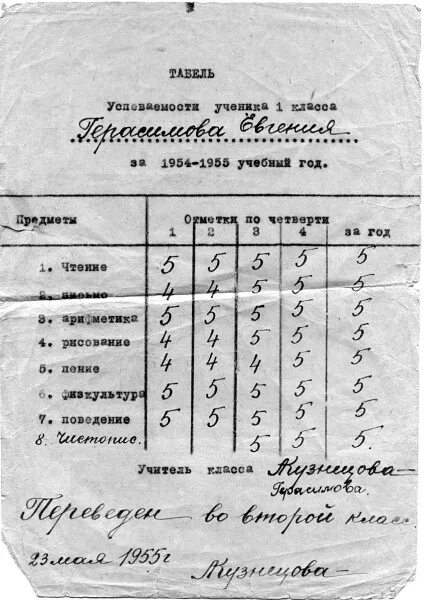 ТАБЕЛЬ
Успеваемости ученика 1 класса
Герасимова Евгения
за 1954-1955 учебный год.
Предметы Отметки по четверти
1 2 3 4 за год
1. Чтение 5 5 5 5 5
2. письмо 4 4 5 5 5
3. арифметика 5 5 5 5 5
4. рисование 4 4 5 5 5
5. пение 4 4 4 5 5
6. физкультура 5 5 5 5 5
7. поведение 5 5 5 5 5
8. Чистопис. 5 5 5.
Учитель класса Кузнецова
Герасимова.
Переведен во второй клас
23 мая 1955г
Кузнецова